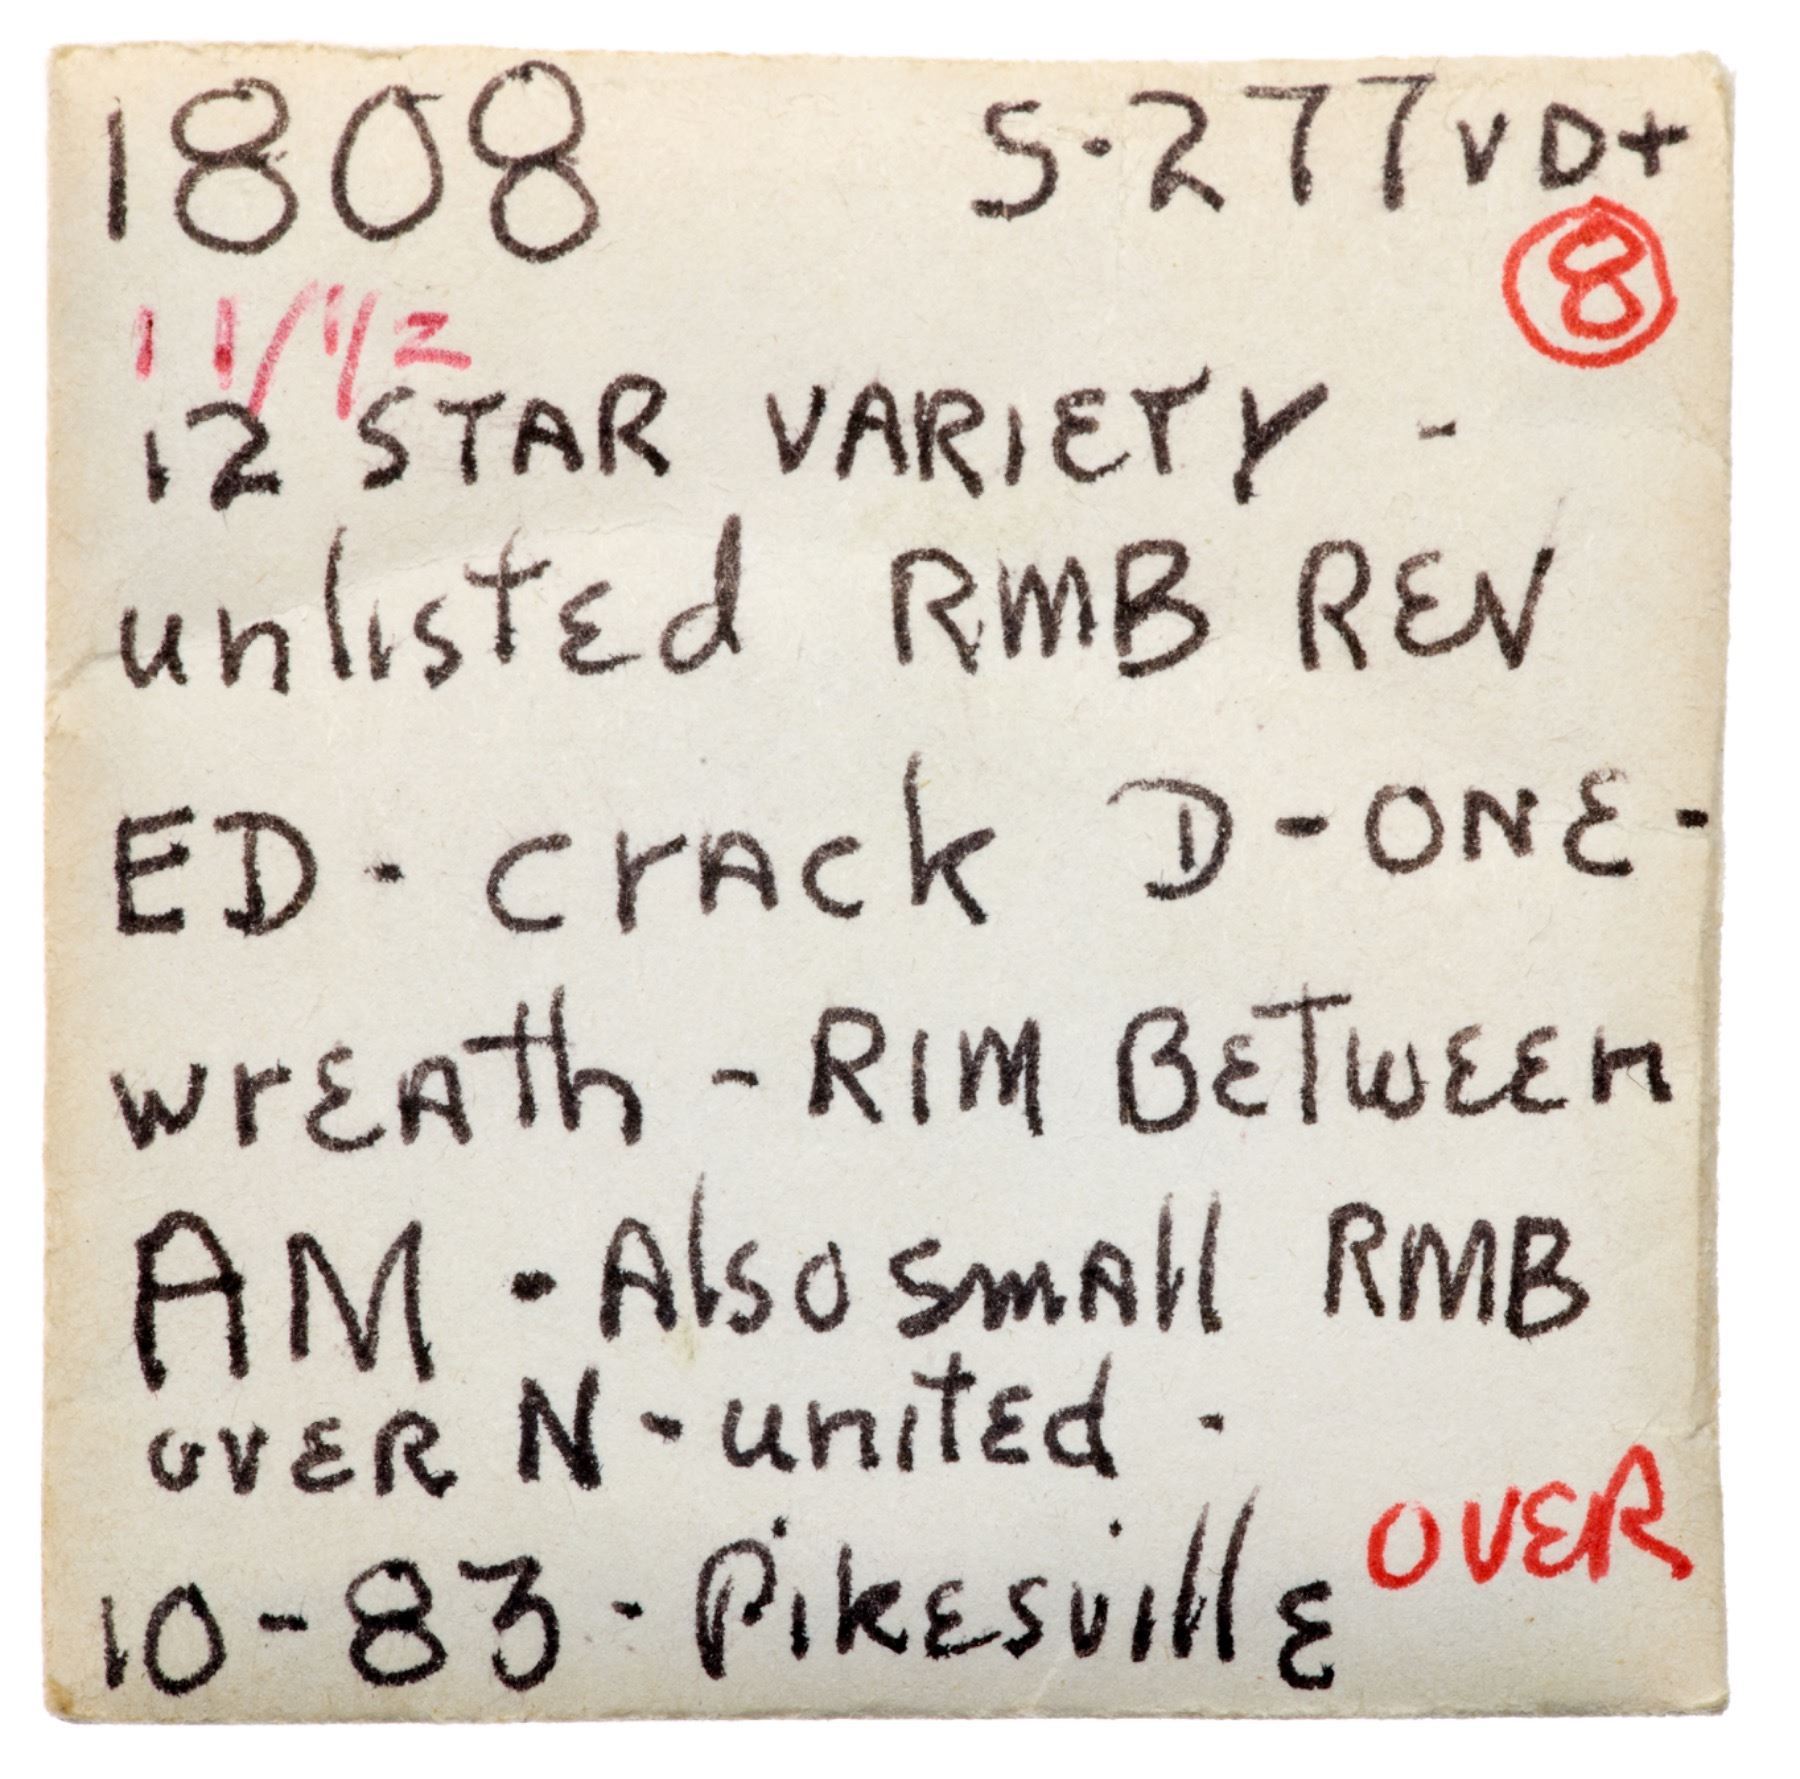 1808 S-277 VD+
8
11/1/2
12 STAR VARIETY -
unlisted RMB REV
ED - crack D-ONE-
wreath - RIM BETWEEN
AM - Also small RMB
OVER N - united -
OVER
10-83 - Pikesville